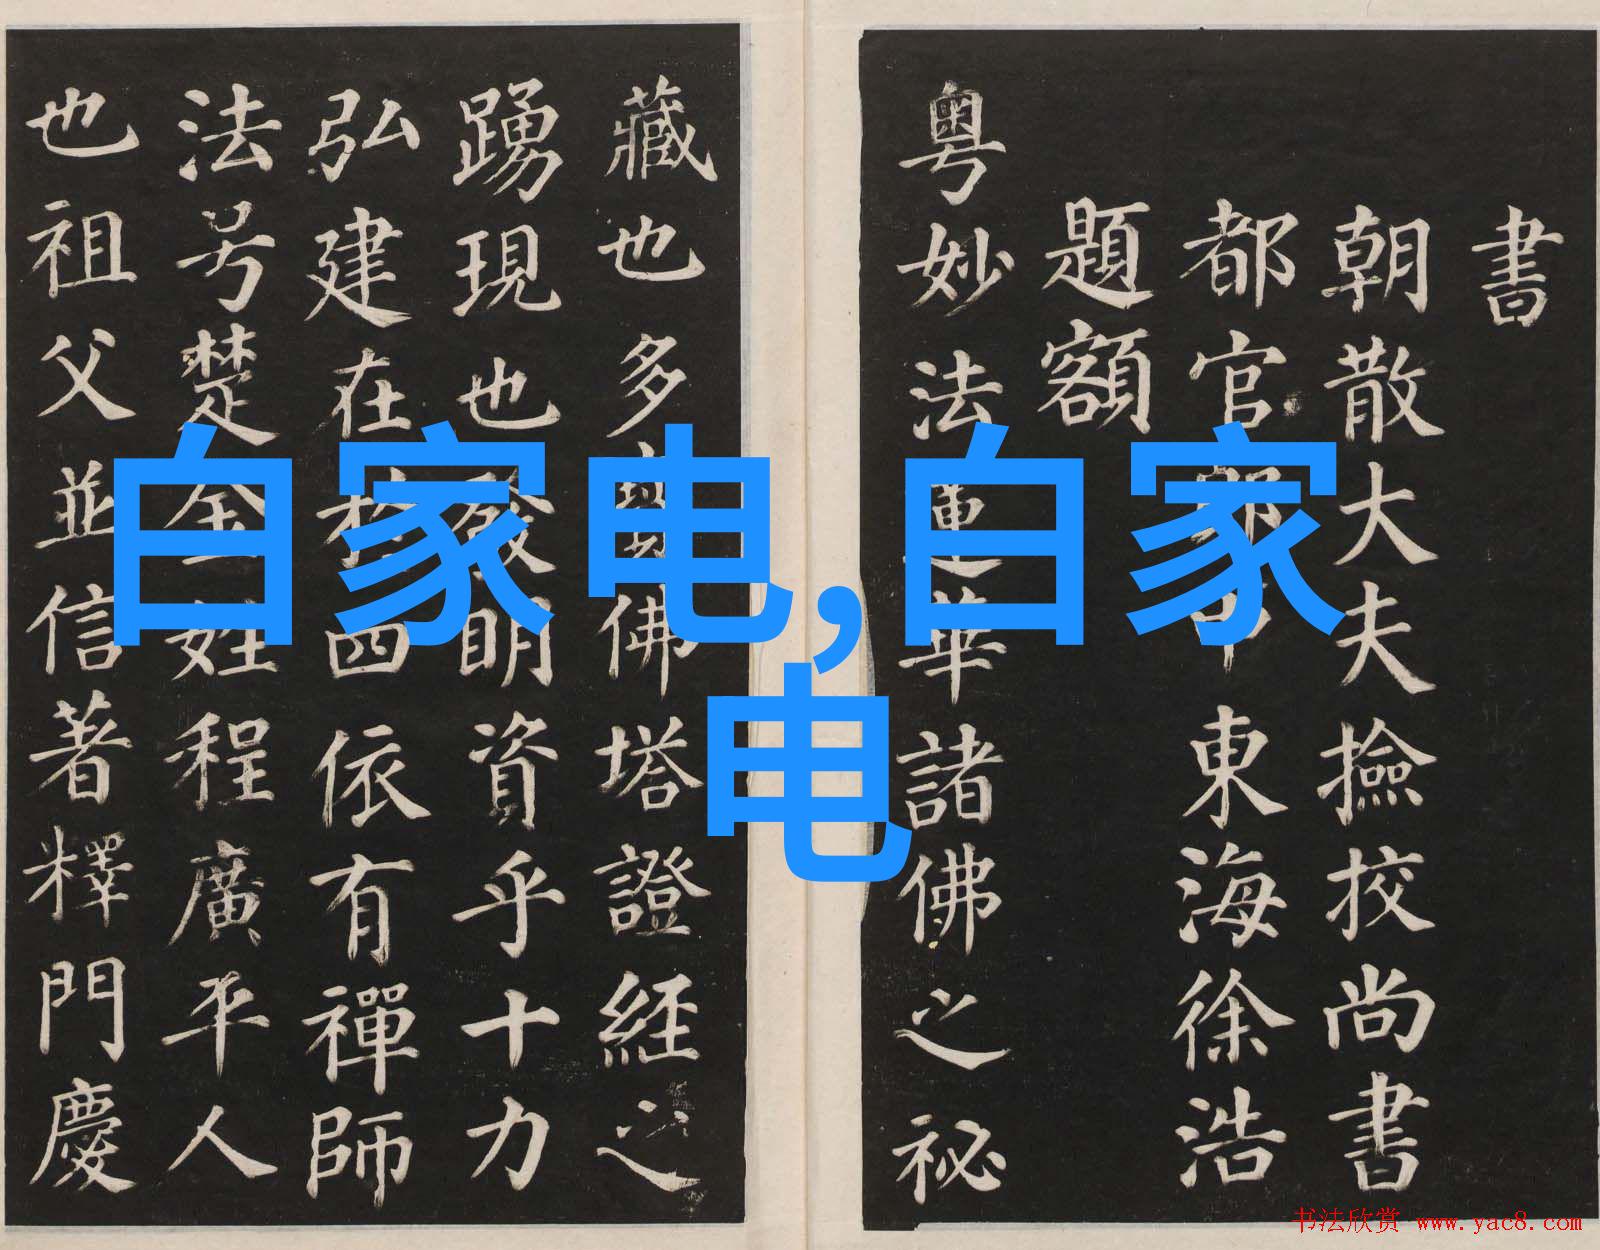 書
朝散大夫撿挍尚書
都官郎中東海徐浩
題額
粵妙法蓮華諸佛之祕
藏也多寶佛塔證經之
踴現也發明資乎十力
弘建在於四依有禪師
法号楚金姓程廣平人
也祖父並信著釋門慶
白家电,白家
电
书法欣赏 www.yac8.com